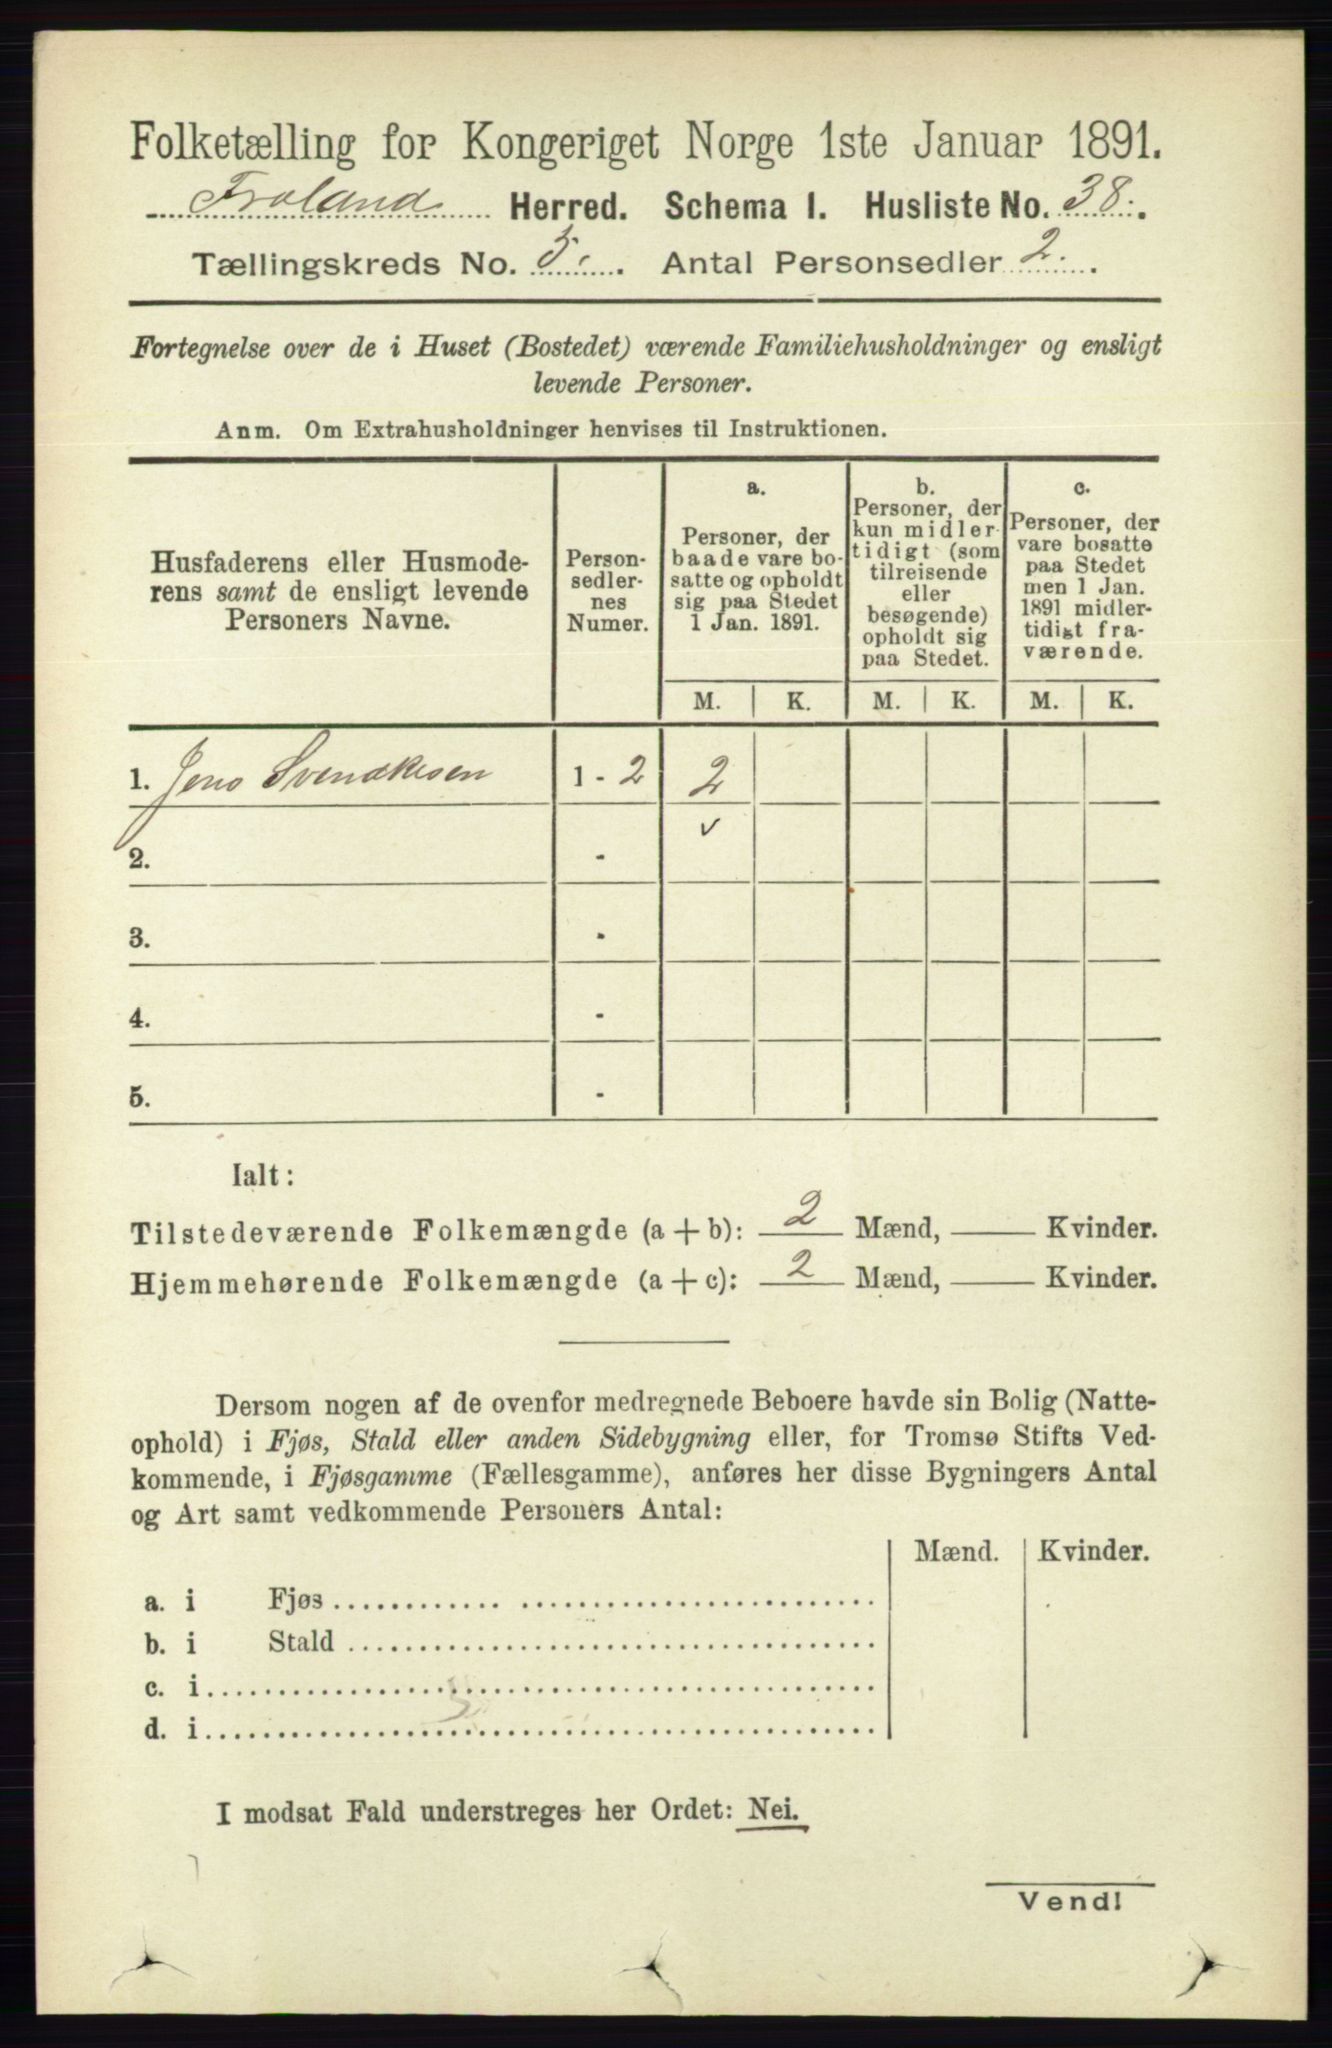 Folketælling for Kongeriget Norge 1ste Januar 1891.
Froland Herred. Schema I. Husliste No. 38.
Tællingskreds No. 5. Antal Personsedler 2.
Fortegnelse over de i Huset (Bostedet) værende Familiehusholdninger og ensligt
levende Personer.
Anm. Om Extrahusholdninger henvises til Instruktionen.
Husfaderens eller Husmode-
rens samt de ensligt levende
Personers Navne.
Person-
sedler-
nes
Numer.
a.
Personer, der
baade vare bo-
satte og opholdt
sig paa Stedet
1 Jan. 1891.
b.
Personer, der
kun midler-
tidigt (som
tilreisende
eller
besøgende)
opholdt sig
paa Stedet.
c.
Personer, der
vare bosatte
paa Stedet
men 1 Jan.
1891 midler-
tidigt fra-
værende.
M. K. M. K. M. K.
1. Jens Svendksen 1 - 2 2
v
2. -
3. -
4. -
5. -
Ialt:
Tilstedeværende Folkemængde (a + b): 2 Mænd, — Kvinder.
Hjemmehørende Folkemængde (a + c): 2 Mænd, — Kvinder.
Dersom nogen af de ovenfor medregnede Beboere havde sin Bolig (Natte-
ophold) i Fjøs, Stald eller anden Sidebygning eller, for Tromsø Stifts Ved-
kommende, i Fjøsgamme (Fællesgamme), anføres her disse Bygningers Antal
og Art samt vedkommende Personers Antal:
Mænd. Kvinder.
a. i Fjøs
b. i Stald
c. i
d. i
I modsat Fald understreges her Ordet: Nei.
Vend!